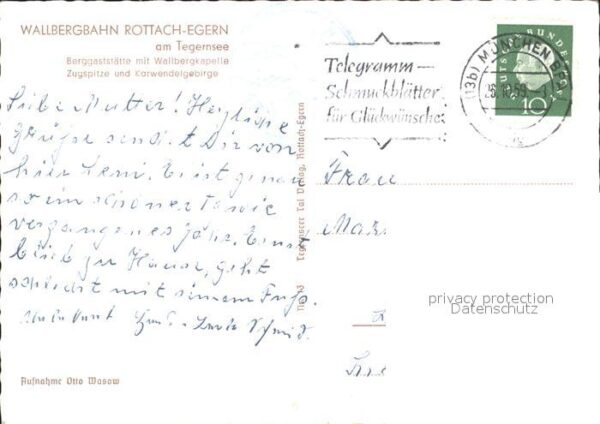 WALLBERGBAHN ROTTACH-EGERN
am Tegernsee
Berggaststätte mit Wallbergkapelle
Zugspitze und Karwendelgebirge
Liebe Mutter! Herzliche
Grüße sendet Dir von
hier Leni. Es ist genau
so ein schöner Tag wie
vergangenes Jahr. Ernst
blieb zu Hause, geht
schlecht mit seinem Fuß.
Schmid.
Aufnahme Otto Wasow
Tegernseer Tal Verlag, Rottach-Egern
Telegramm —
Schmuckblätter
für Glückwünsche
(13b) MÜNCHEN
59
DEUTSCHE BUNDESPOST
10
Frau
Mar
privacy protection
Datenschutz